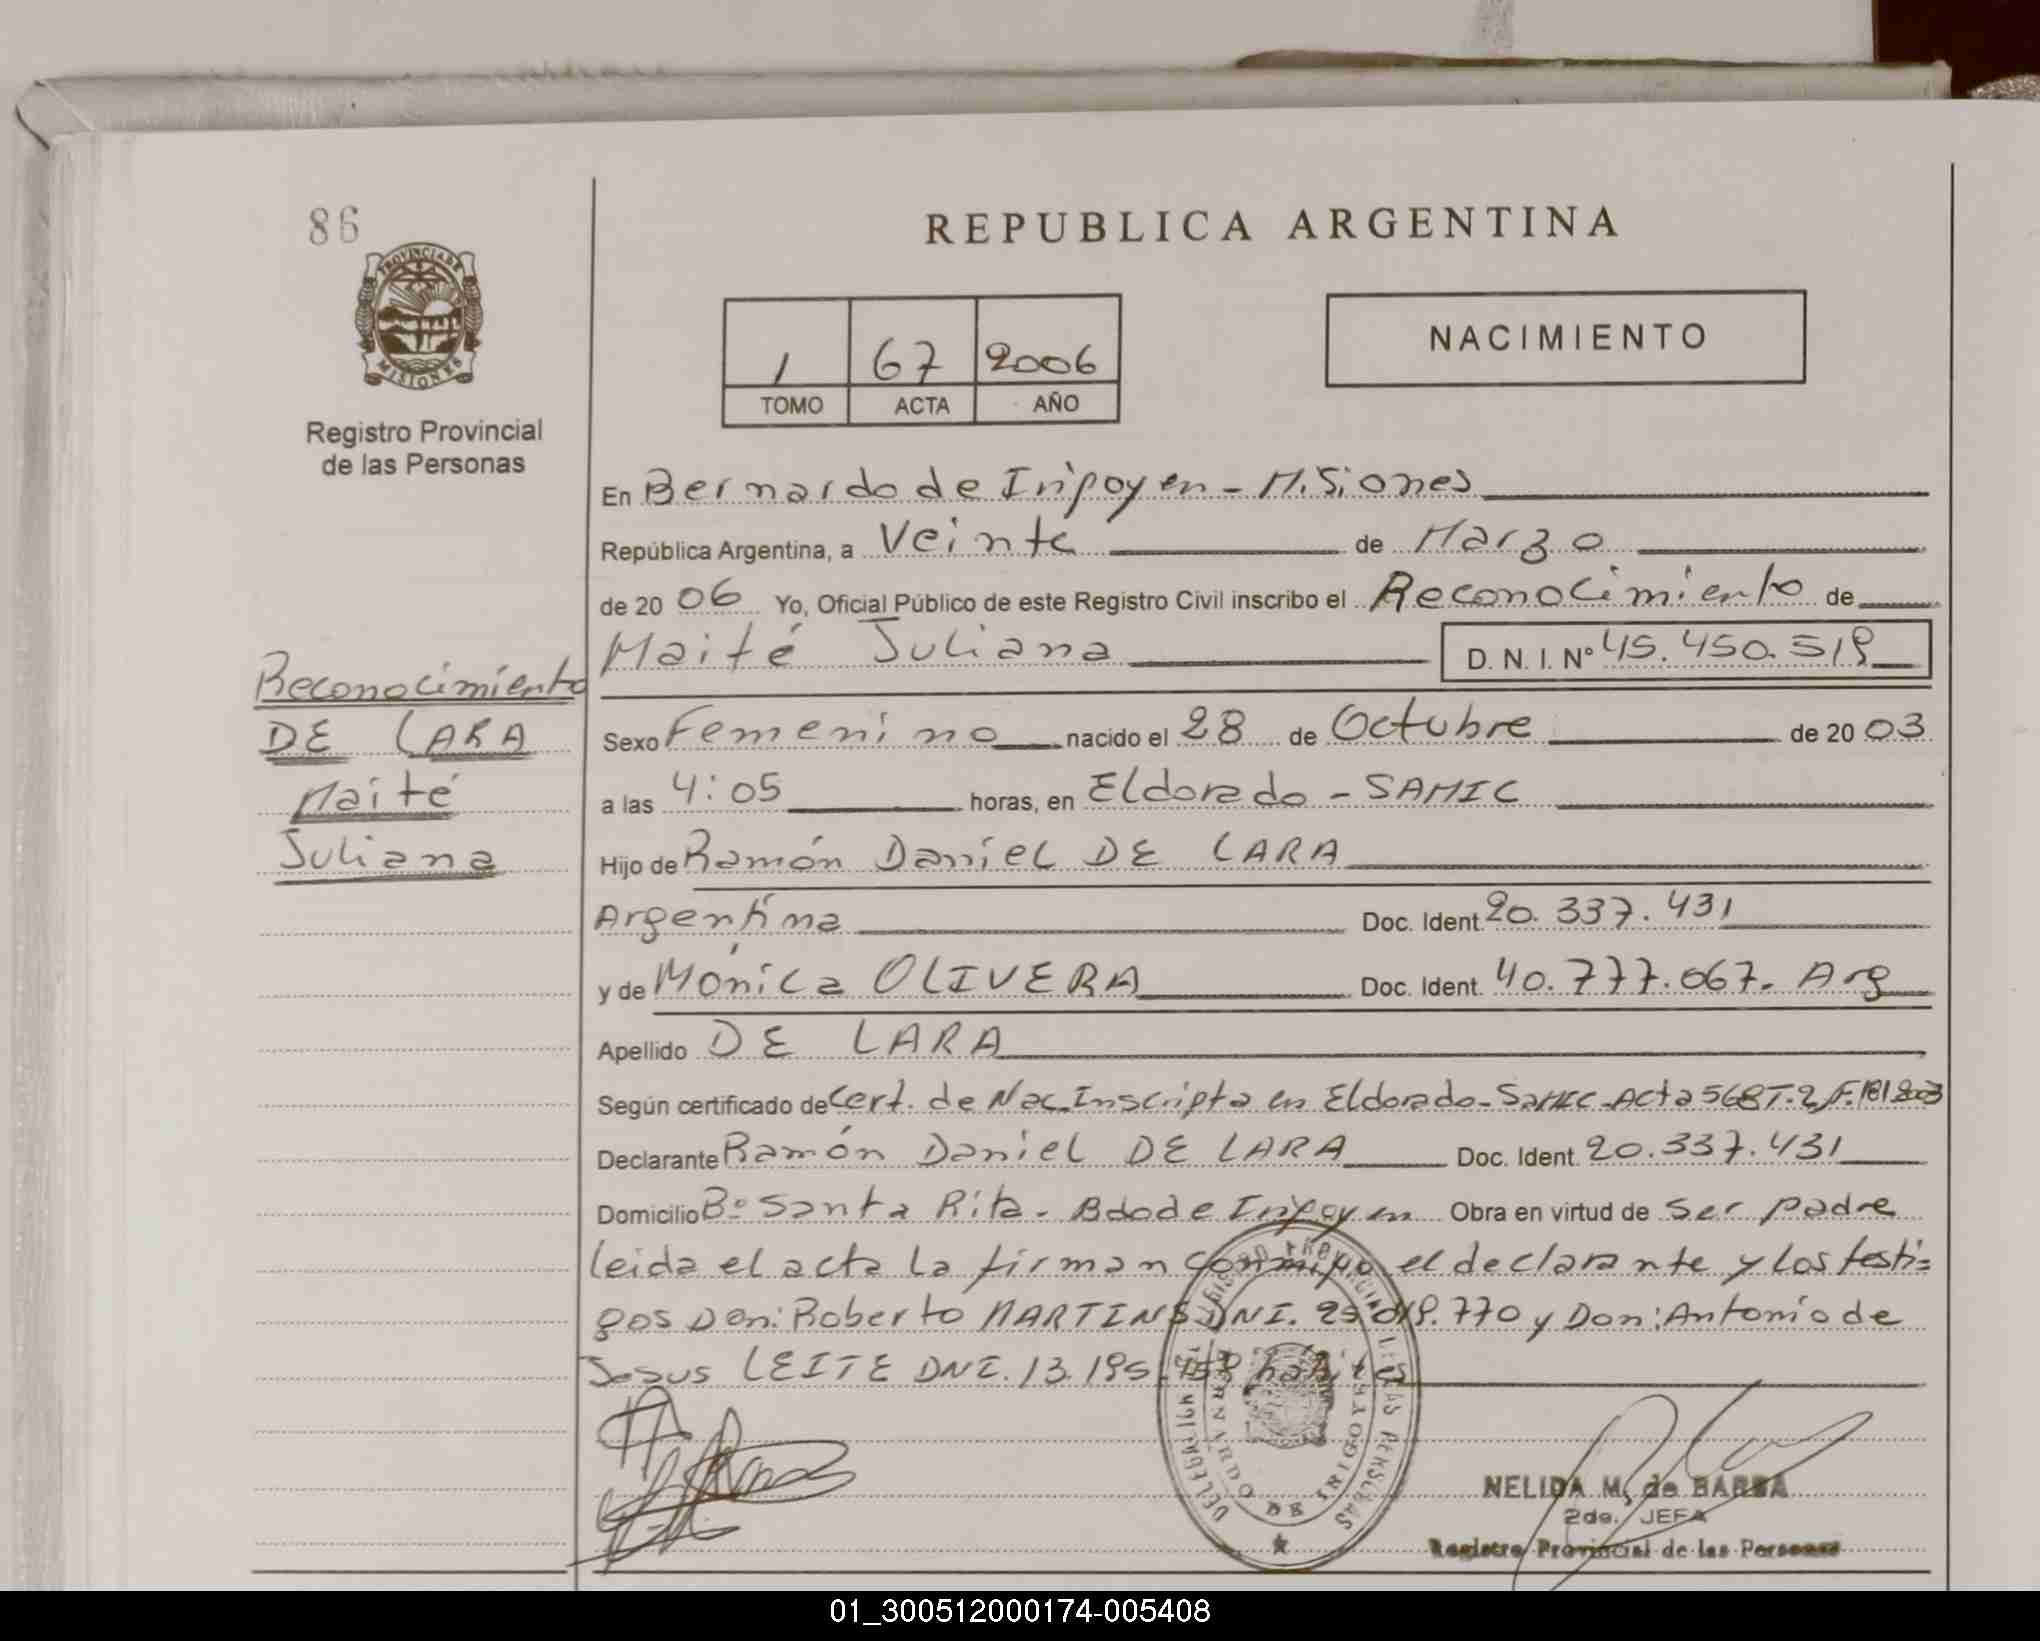 86
PROVINCIA DE
MISIONES
Registro Provincial
de las Personas
REPUBLICA ARGENTINA
1 67 2006
TOMO ACTA AÑO
NACIMIENTO
En Bernardo de Irigoyen - Misiones
República Argentina, a Veinte de Marzo
de 20 06 Yo, Oficial Público de este Registro Civil inscribo el Reconocimiento de
Maité Juliana D. N. I. Nº 45.450.519
Reconocimiento
DE LARA
Maité
Juliana
Sexo Femenino nacido el 28 de Octubre de 20 03
a las 4:05 horas, en Eldorado - SAMIC
Hijo de Ramón Daniel DE LARA
Argentina Doc. Ident. 20.337.431
y de Mónica OLIVERA Doc. Ident. 40.777.067. Arg
Apellido DE LARA
Según certificado de Cert. de Nac. Inscripta en Eldorado - SAMIC - Acta 568 T. 2, F. 181 2003
Declarante Ramón Daniel DE LARA Doc. Ident. 20.337.431
Domicilio Bº Santa Rita - Bdo de Irigoyen Obra en virtud de ser padre
leida el acta la firman conmigo el declarante y los testi=
gos Don: Roberto MARTINS DNI. y Don: Antonio de
Jesus LEITE DNI. hábiles
BERNARDO DE IRIGOYEN
NELIDA M. de BARBA
2da. JEFA
Registro Provincial de las Personas
01_300512000174-005408